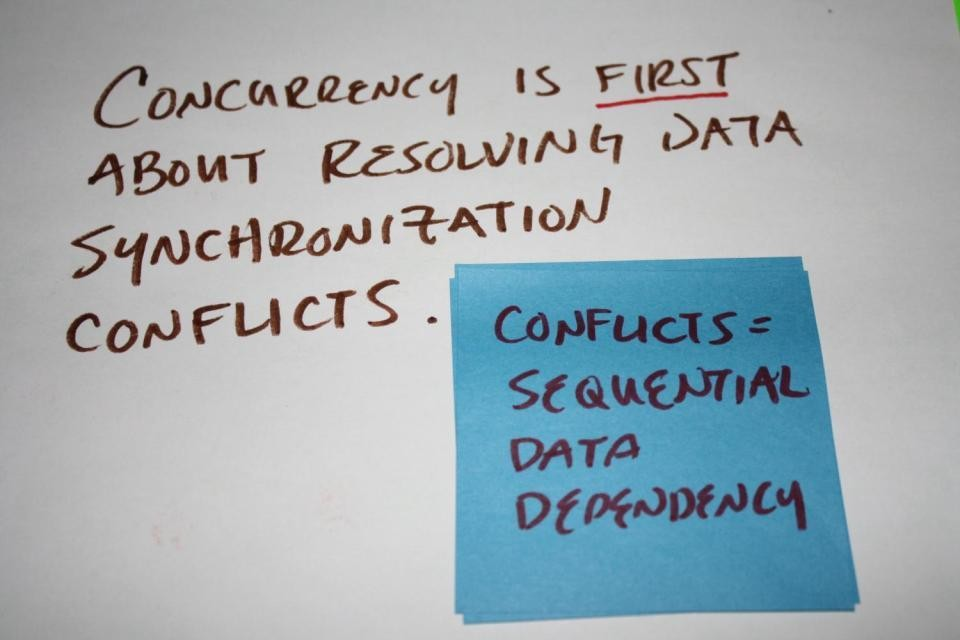 CONCURRENCY IS FIRST
ABOUT RESOLVING DATA
SYNCHRONIZATION
CONFLICTS.
CONFLICTS =
SEQUENTIAL
DATA
DEPENDENCY